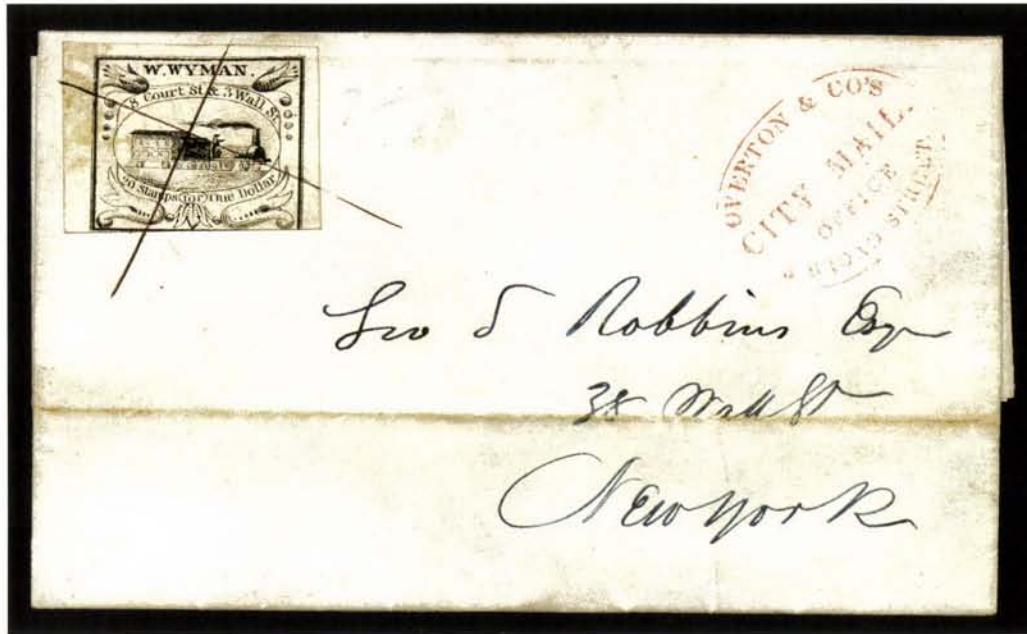 W. WYMAN.
8 Court St. & 3 Wall St.
20 Stamps for One Dollar
OVERTON & CO'S
CITY MAIL.
OFFICE
BROAD STREET.
Geo S Robbins Esqr
38 Wall St
New York